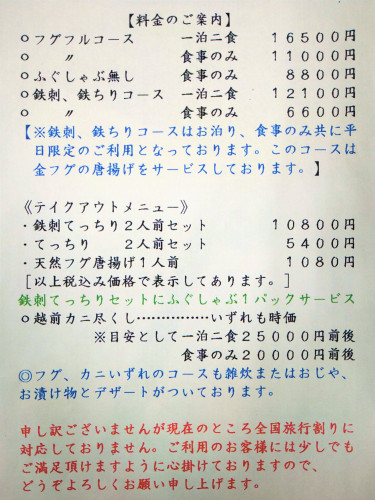 【料金のご案内】
○フグフルコース 一泊二食 16500円
○ 〃 食事のみ 11000円
○ふぐしゃぶ無し 8800円
○鉄刺、鉄ちりコース 一泊二食 12100円
○ 〃 食事のみ 6600円
【※鉄刺、鉄ちりコースはお泊り、食事のみ共に平
日限定のご利用となっております。このコースは
金フグの唐揚げをサービスしております。】
《テイクアウトメニュー》
・鉄刺てっちり2人前セット 10800円
・てっちり 2人前セット 5400円
・天然フグ唐揚げ1人前 1080円
[以上税込み価格で表示してあります。]
鉄刺てっちりセットにふぐしゃぶ1パックサービス
○越前カニ尽くし……………いずれも時価
※目安として一泊二食25000円前後
食事のみ20000円前後
◎フグ、カニいずれのコースも雑炊またはおじや、
お漬け物とデザートがついております。
申し訳ございませんが現在のところ全国旅行割りに
対応しておりません。ご利用のお客様には少しでも
ご満足頂けますように心掛けておりますので、
どうぞよろしくお願い申し上げます。